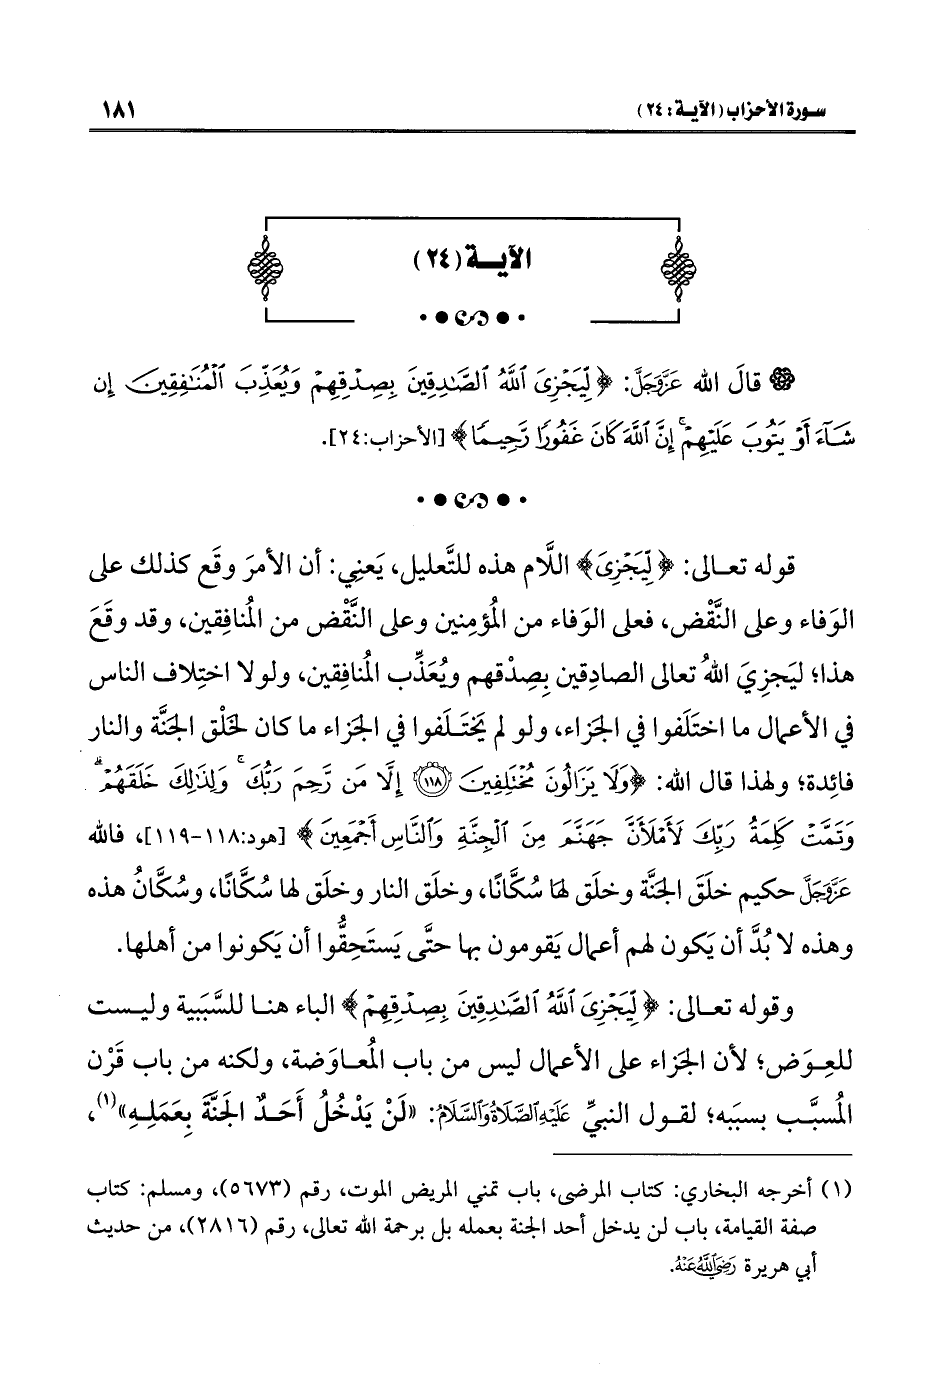 سورة الأحزاب (الآية: ٢٤)
١٨١
الآية (٢٤)
قالَ الله عَزَّوَجَلَّ: ﴿لِّيَجْزِىَ ٱللَّهُ ٱلصَّـٰدِقِينَ بِصِدْقِهِمْ وَيُعَذِّبَ ٱلْمُنَـٰفِقِينَ إِن
شَآءَ أَوْ يَتُوبَ عَلَيْهِمْ ۚ إِنَّ ٱللَّهَ كَانَ غَفُورًا رَّحِيمًا﴾ [الأحزاب:٢٤].
قوله تعالى: ﴿لِّيَجْزِىَ﴾ اللَّام هذه للتَّعليل، يَعنِي: أن الأمرَ وقَع كذلك على
الوَفاء وعلى النَّقْض، فعلى الوَفاء من المُؤمِنين وعلى النَّقْض من المُنافِقين، وقد وقَعَ
هذا؛ ليَجزِيَ اللهُ تعالى الصادِقين بصِدْقهم ويُعَذِّب المُنافِقين، ولولا اختِلاف الناس
في الأعمال ما اختَلَفوا في الجَزاء، ولو لم يَختَلَفوا في الجَزاء ما كان لخَلْق الجَنَّة والنار
فائِدة؛ ولهذا قال الله: ﴿وَلَا يَزَالُونَ مُخْتَلِفِينَ ﴿١١٨﴾ إِلَّا مَن رَّحِمَ رَبُّكَ ۚ وَلِذَٰلِكَ خَلَقَهُمْ ۗ
وَتَمَّتْ كَلِمَةُ رَبِّكَ لَأَمْلَأَنَّ جَهَنَّمَ مِنَ ٱلْجِنَّةِ وَٱلنَّاسِ أَجْمَعِينَ﴾ [هود:١١٨-١١٩]، فالله
عَزَّوَجَلَّ حكيم خلَقَ الجَنَّة وخلَق لها سُكَّانًا، وخلَق النار وخلَق لها سُكَّانًا، وسُكَّانُ هذه
وهذه لا بُدَّ أن يَكون لهم أعمال يَقومون بها حتَّى يَستَحِقُّوا أن يَكونوا من أهلها.
وقوله تعالى: ﴿لِّيَجْزِىَ ٱللَّهُ ٱلصَّـٰدِقِينَ بِصِدْقِهِمْ﴾ الباء هنا للسَّبَبية وليست
للعِوَض؛ لأن الجَزاء على الأعمال ليس من باب المُعاوَضة، ولكنه من باب قَرْن
المُسبَّب بسبَبه؛ لقول النبيِّ عَلَيْهِ الصَّلَاةُ وَالسَّلَامُ: «لَنْ يَدْخُلُ أَحَدٌ الجَنَّةَ بِعَمَلِهِ»(١)،
(١) أخرجه البخاري: كتاب المرضى، باب تمني المريض الموت، رقم (٥٦٧٣)، ومسلم: كتاب
صفة القيامة، باب لن يدخل أحد الجنة بعمله بل برحمة الله تعالى، رقم (٢٨١٦)، من حديث
أبي هريرة رَضِيَ اللَّهُ عَنْهُ.